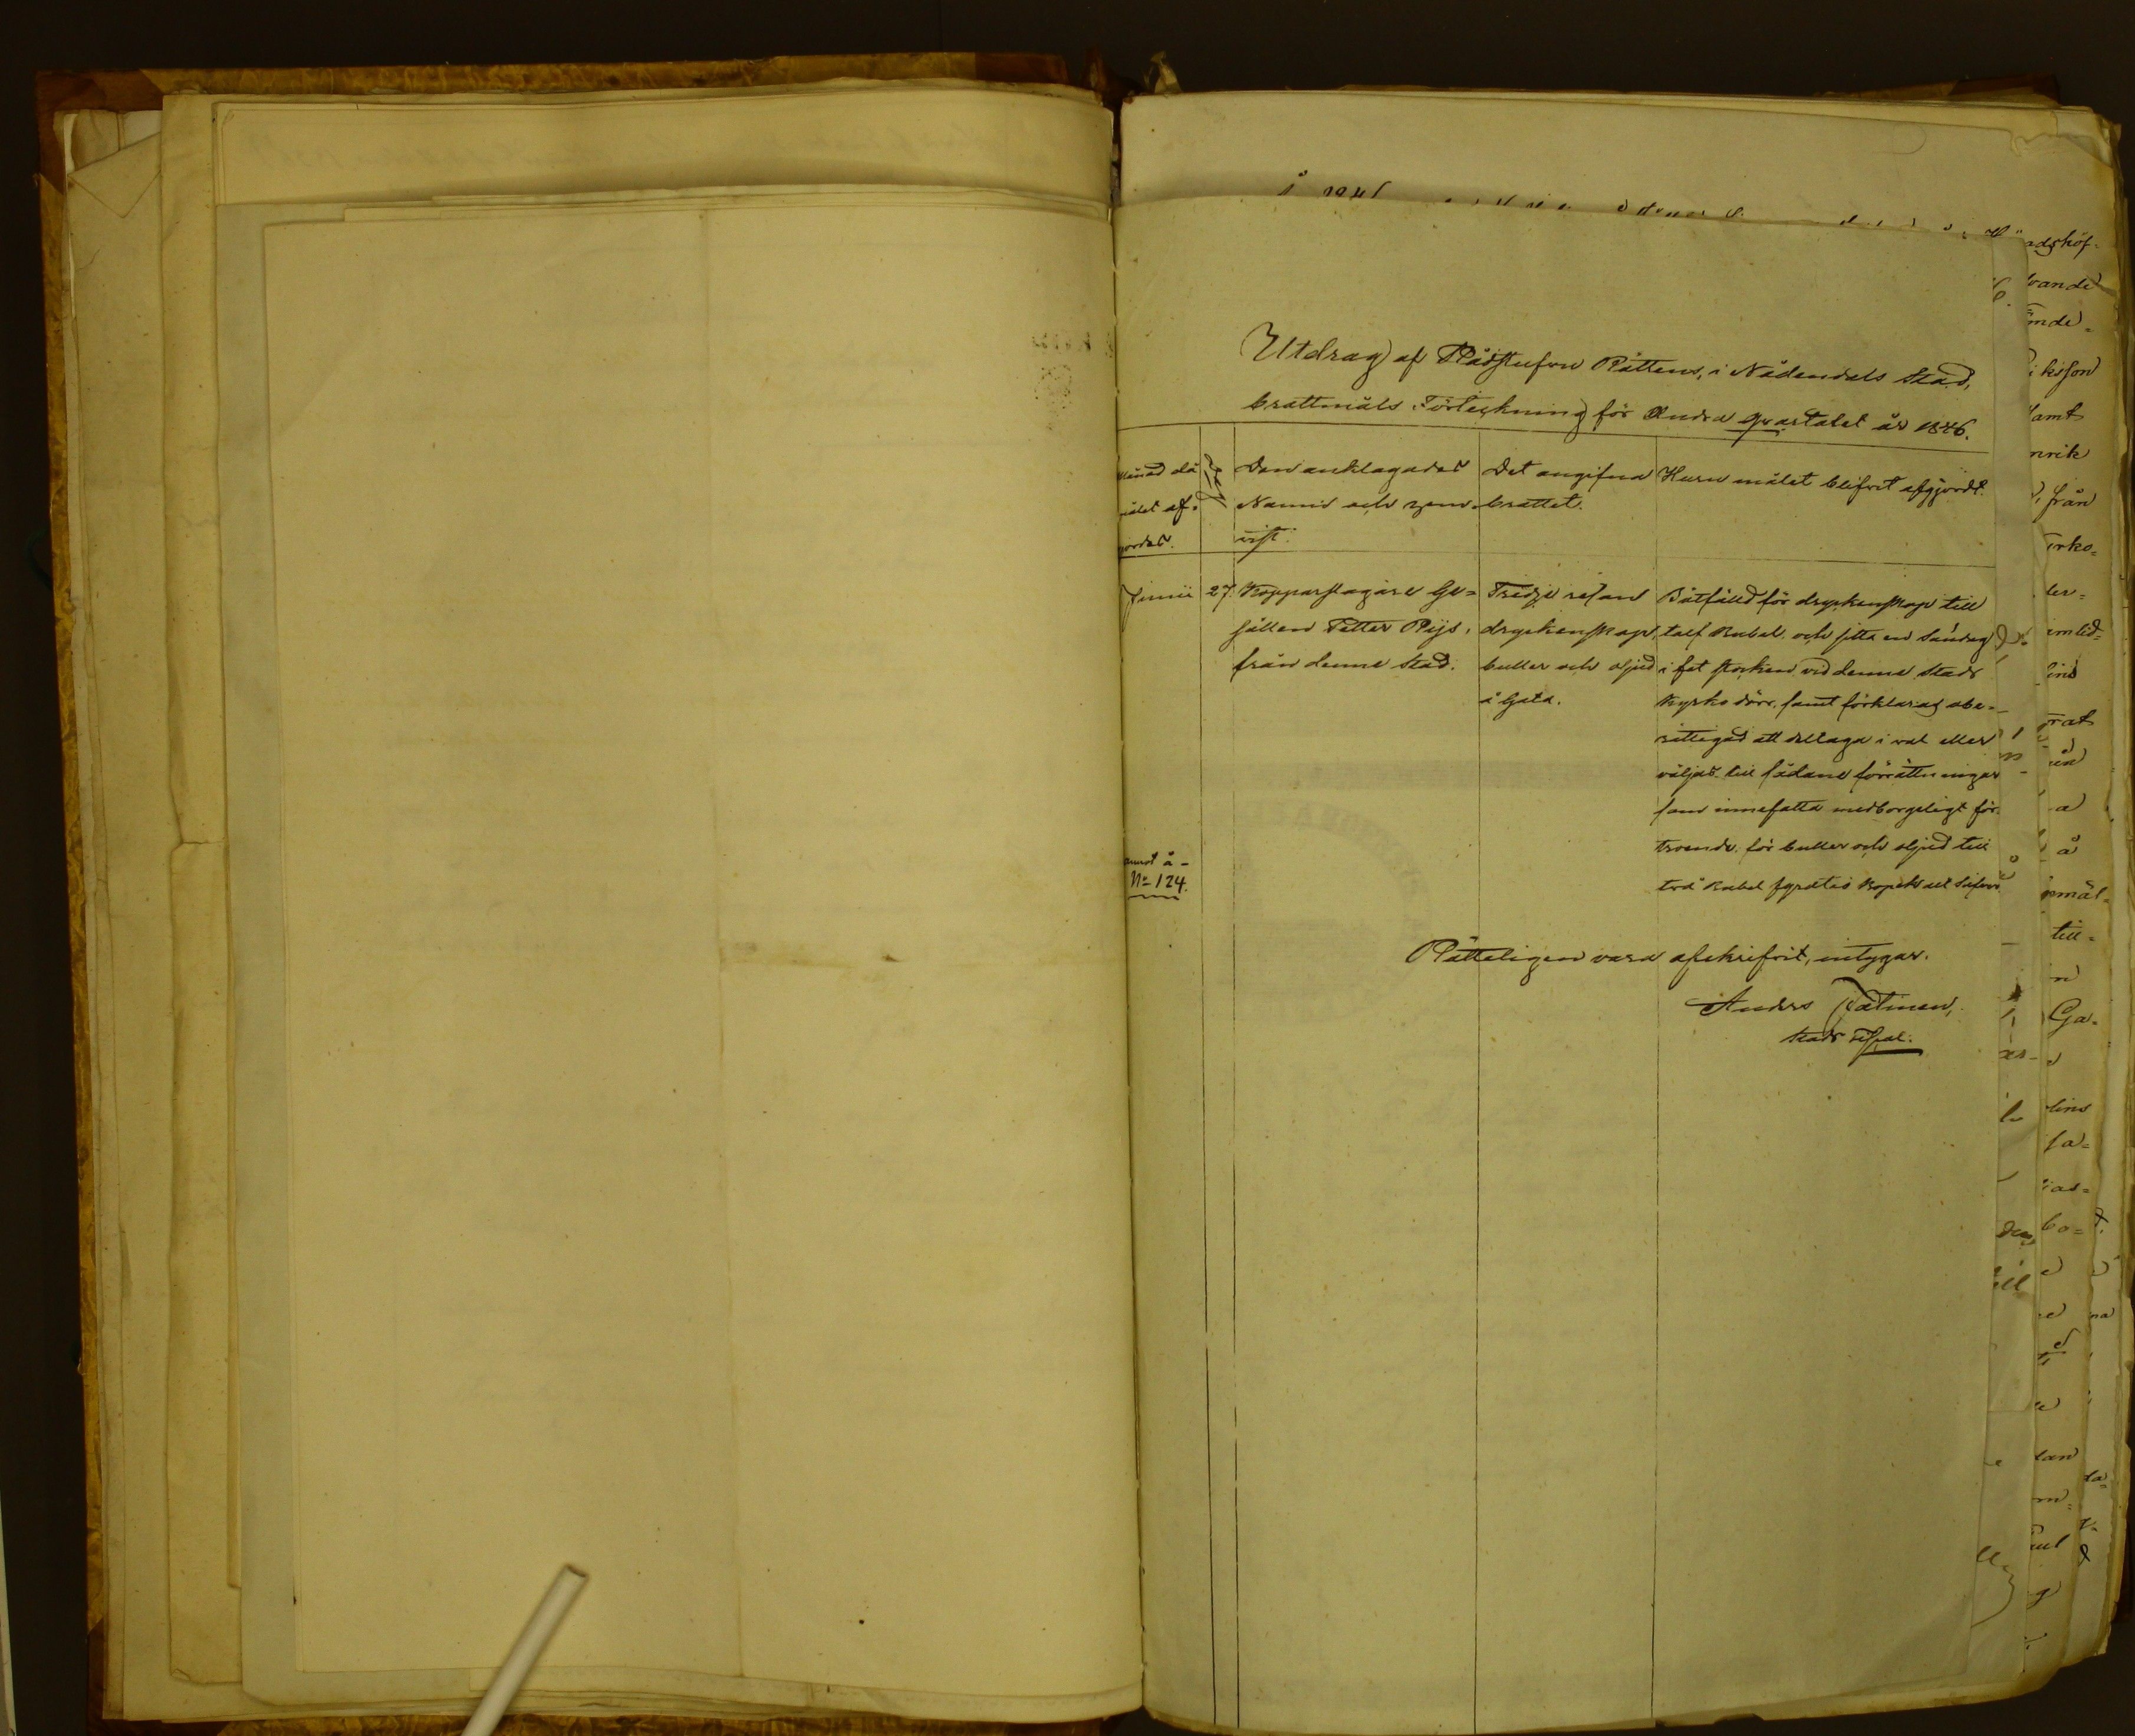 Utdrag af Rådstufvu Rättens, i Nådendals Stad,
brottmåls Förteckning för Andra qvartalet år 1846.
Månad då
målet af-
gjordes.
Dag
Den anklagades
Namn och hem-
vist.
Det angifna
brottet.
Huru målet blifvit afgjordt.
Junii
27.
Kopparslagare Ge-
sällen Petter Reijs,
från denne Stad.
Tredje resan
dryckenskap,
buller och oljud
å gata.
Bötfälld för dryckenskap till
tolf Rubel, och sitta en Söndag
i fot stocken vid denne Stads
kyrko dörr, samt förklarad obe-
rättigad att deltaga i val eller
väljas till sådane förrättningar
som innefatta medborgeligt för-
troende, för buller och oljud till
två Rubel fyratio Kopek allt Silfver.
annot å -
No 124.
Rätteligen vara afskrifvit, intygar.
Anders Palmen,
Stads Fiskal.
adshöf-
vande
iksson
samt
nrik
från
irko-
ler-
till-
Ga-
sa-
bo-